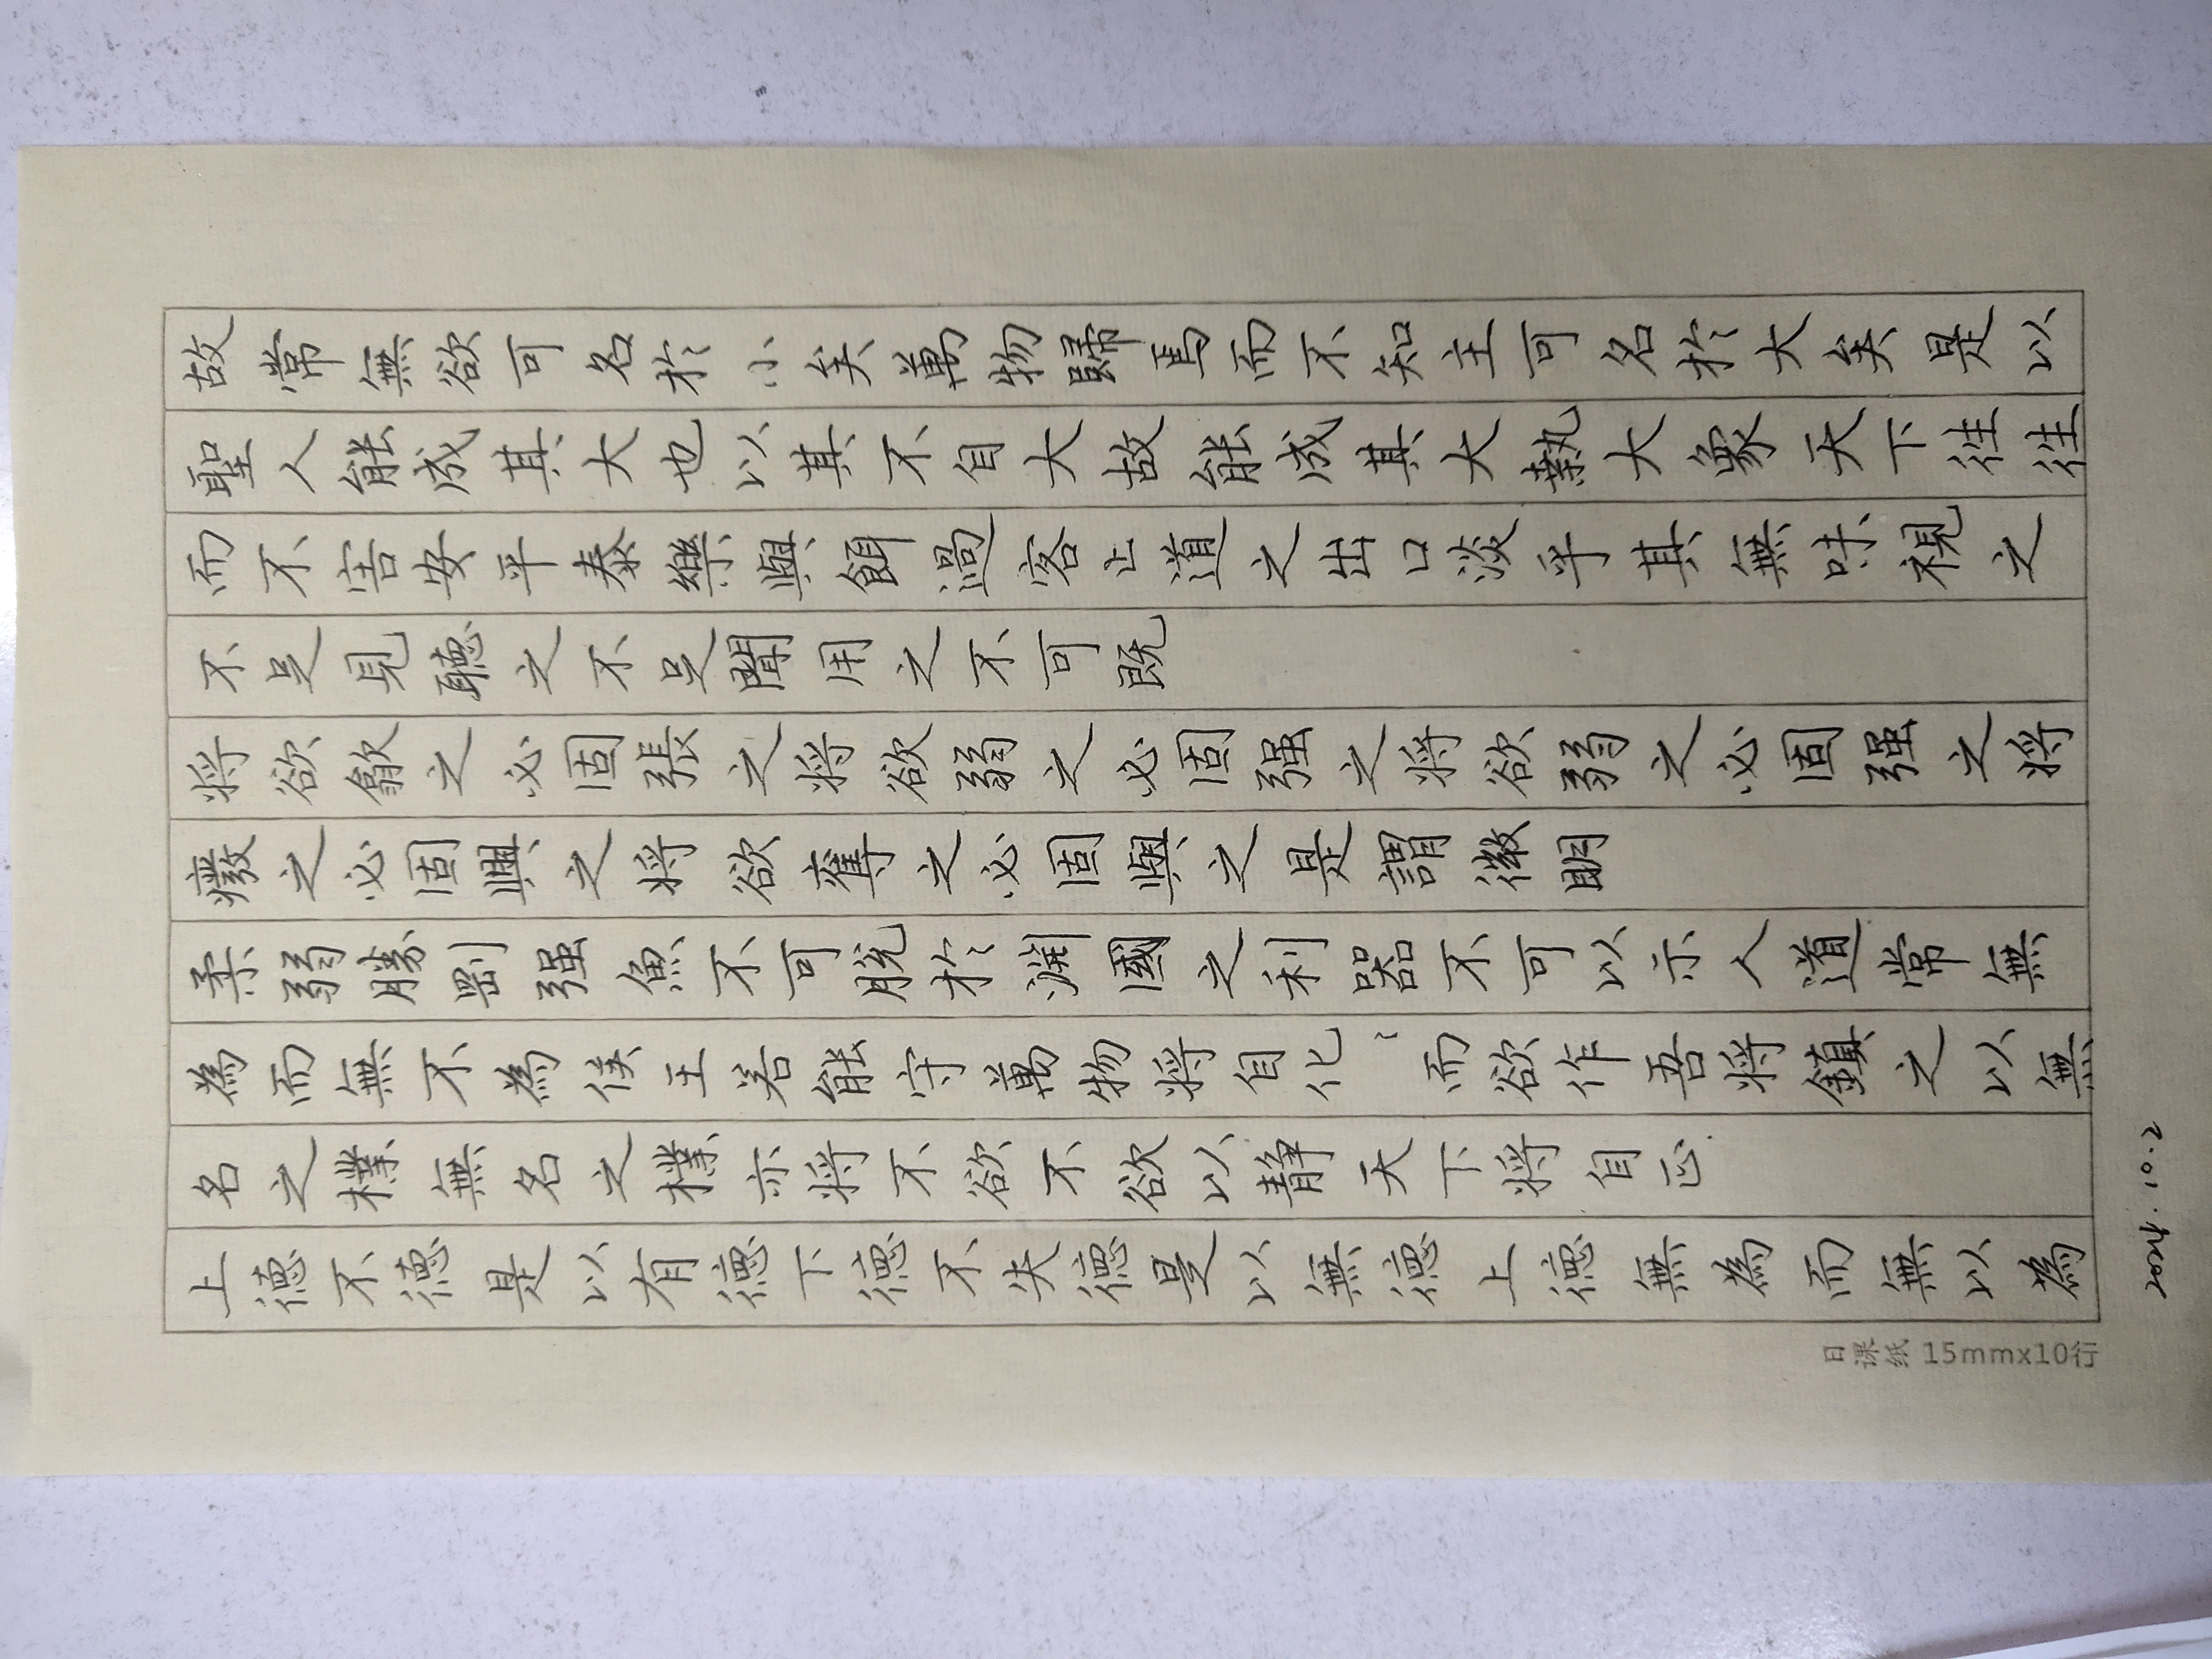 故常無欲可名於小矣萬物歸焉而不知主可名於大矣是以
聖人能成其大也以其不自大故能成其大執大象天下往往
而不害安平泰樂與餌過客止道之出口淡乎其無味視之
不足見聽之不足聞用之不可既
将欲歙之必固張之将欲弱之必固强之将欲弱之必固强之将
癈之必固興之将欲奪之必固與之是謂微明
柔弱勝剛强魚不可脫於淵國之利器不可以示人道常無
為而無不為侯王若能守萬物将自化〻而欲作吾将鎮之以無
名之樸無名之樸亦将不欲不欲以静天下将自正
上德不德是以有德下德不失德是以無德上德無為而無以為
日课纸 15mmx10行
2024.10.2